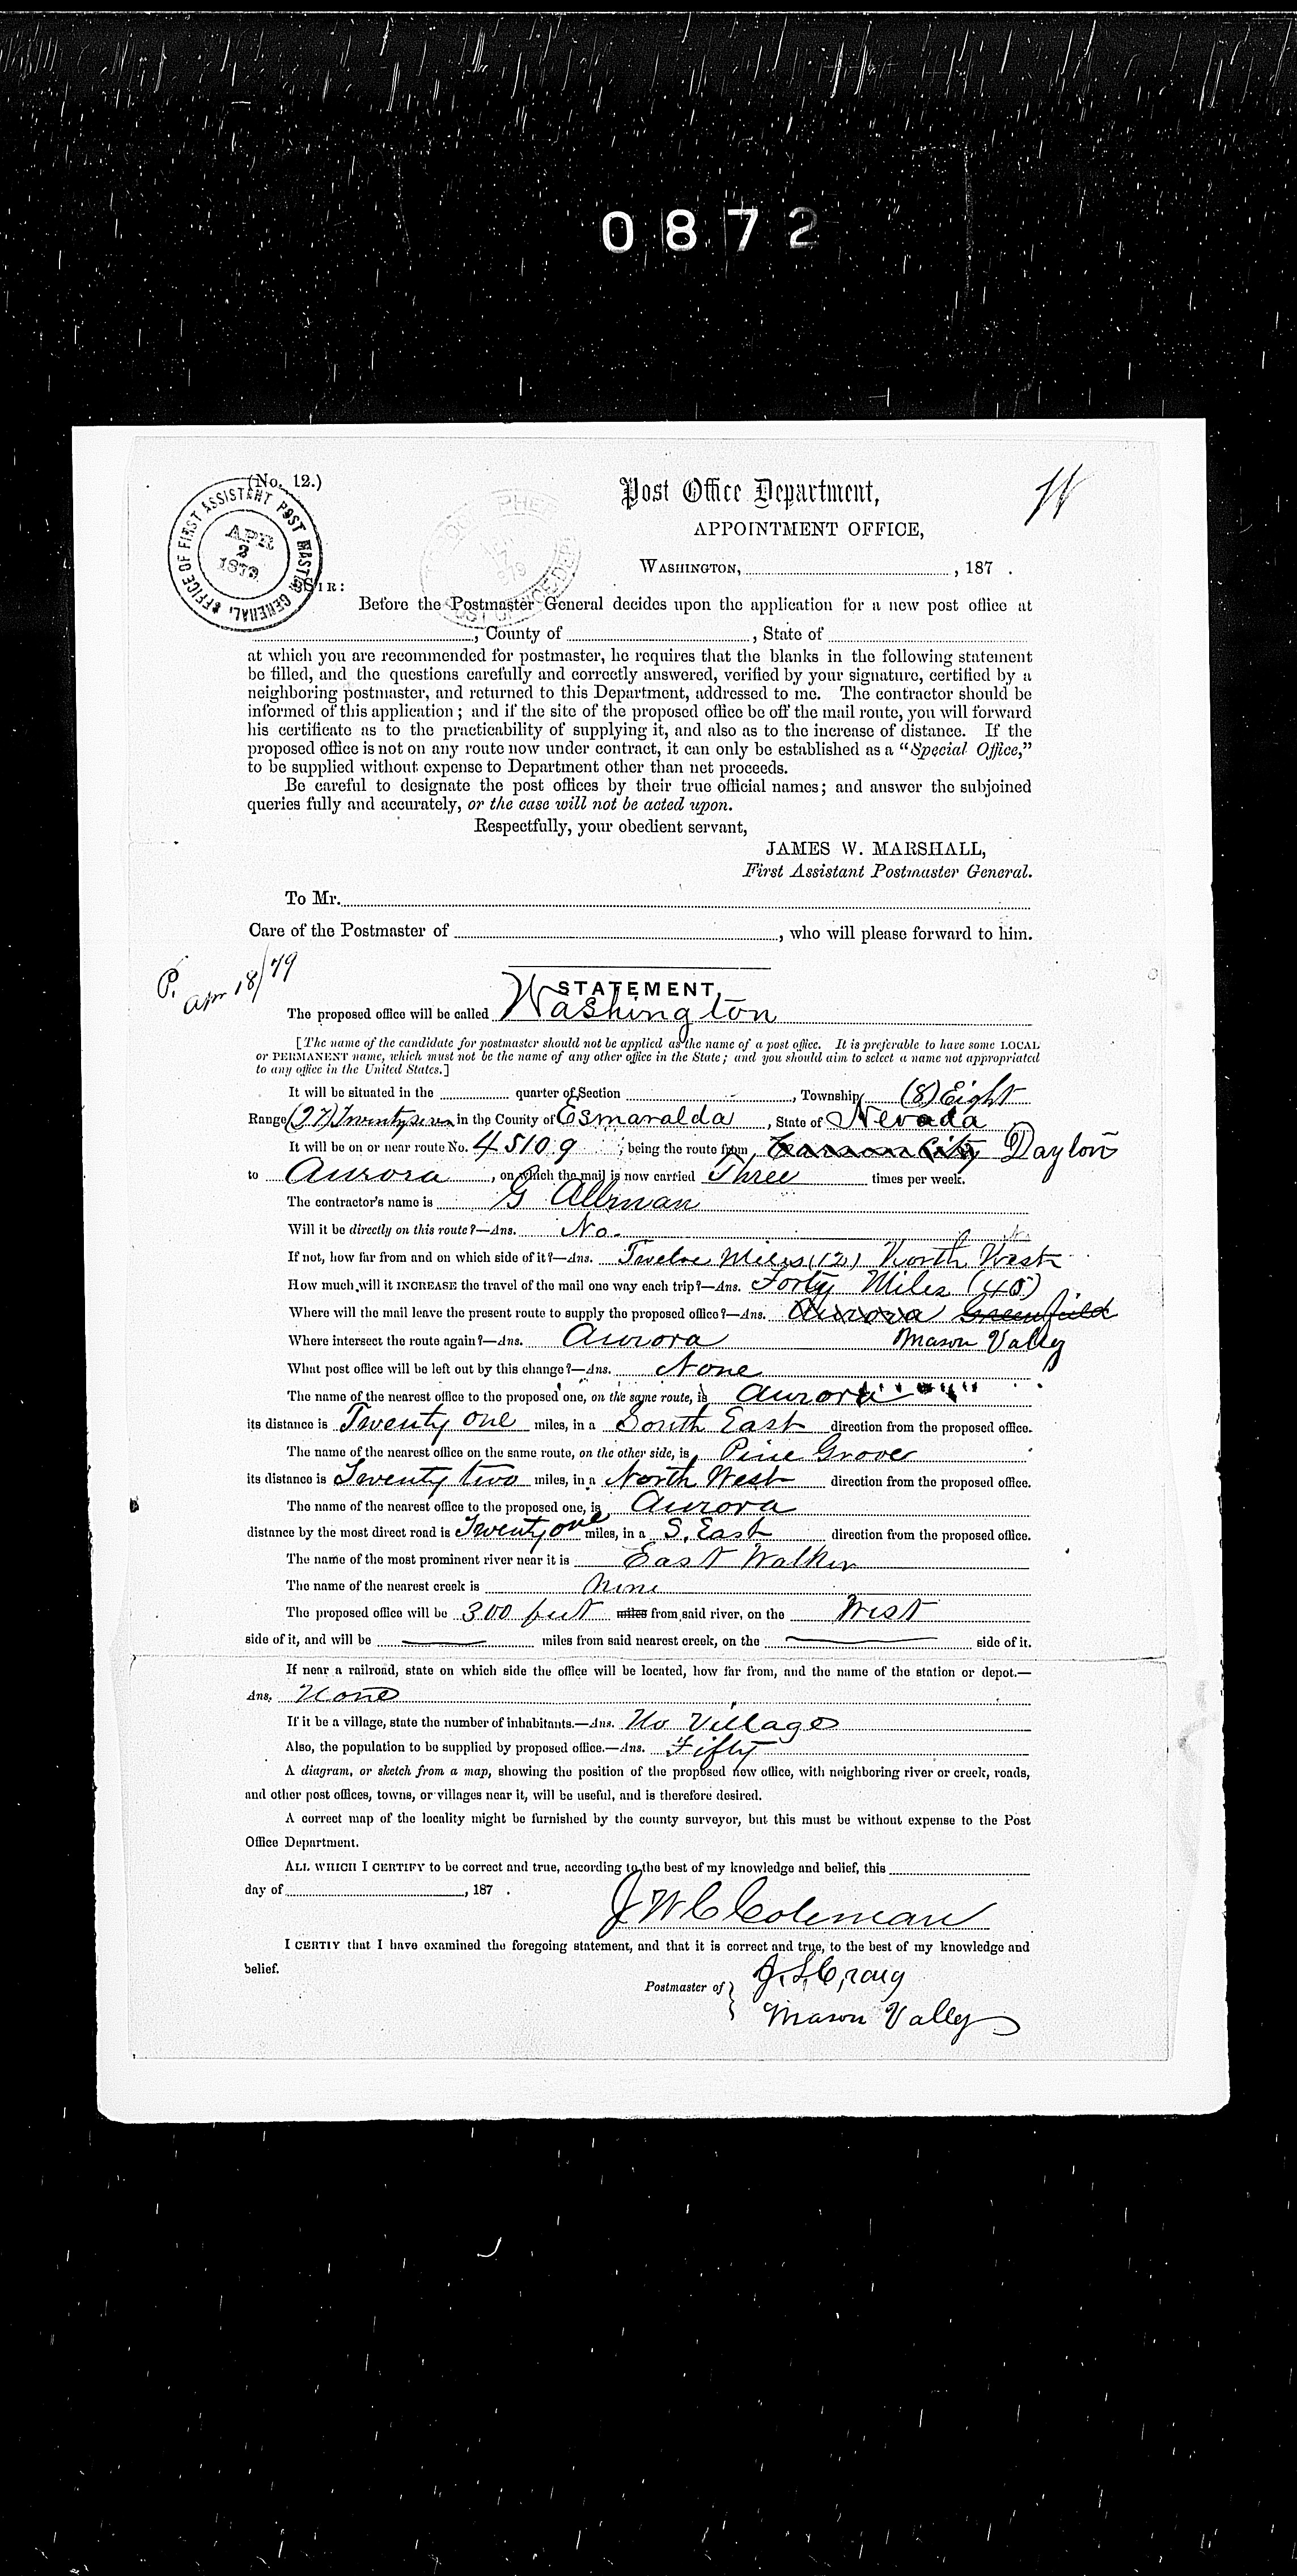 0872
(No. 12.)
OFFICE OF FIRST ASSISTANT POST MASTER GENERAL.
APR
2
1879
Post Office Department,
APPOINTMENT OFFICE,
WASHINGTON, , 187 .
SIR:
Before the Postmaster General decides upon the application for a new post office at
, County of , State of
at which you are recommended for postmaster, he requires that the blanks in the following statement
be filled, and the questions carefully and correctly answered, verified by your signature, certified by a
neighboring postmaster, and returned to this Department, addressed to me. The contractor should be
informed of this application; and if the site of the proposed office be off the mail route, you will forward
his certificate as to the practicability of supplying it, and also as to the increase of distance. If the
proposed office is not on any route now under contract, it can only be established as a “Special Office,”
to be supplied without expense to Department other than net proceeds.
Be careful to designate the post offices by their true official names; and answer the subjoined
queries fully and accurately, or the case will not be acted upon.
Respectfully, your obedient servant,
JAMES W. MARSHALL,
First Assistant Postmaster General.
To Mr.
Care of the Postmaster of , who will please forward to him.
P. Apr 18/79
STATEMENT.
The proposed office will be called Washington
[The name of the candidate for postmaster should not be applied as the name of a post office. It is preferable to have some LOCAL
or PERMANENT name, which must not be the name of any other office in the State; and you should aim to select a name not appropriated
to any office in the United States.]
It will be situated in the quarter of Section , Township (8) Eight
Range (27) Twentyseven in the County of Esmaralda , State of Nevada
It will be on or near route No. 45109 , being the route from Carson City Dayton
to Aurora , on which the mail is now carried Three times per week.
The contractor's name is G Allman
Will it be directly on this route?—Ans. No.
If not, how far from and on which side of it?—Ans. Twelve Miles (12) North West
How much will it INCREASE the travel of the mail one way each trip?—Ans. Forty Miles (40)
Where will the mail leave the present route to supply the proposed office?—Ans. Aurora Greenfield
Where intersect the route again?—Ans. Aurora Mason Vally
What post office will be left out by this change?—Ans. None
The name of the nearest office to the proposed one, on the same route, is Aurora
its distance is Twenty one miles, in a South East direction from the proposed office.
The name of the nearest office on the same route, on the other side, is Pine Grove
its distance is Twenty two miles, in a North West direction from the proposed office.
The name of the nearest office to the proposed one, is Aurora
distance by the most direct road is Twenty one miles, in a S. East direction from the proposed office.
The name of the most prominent river near it is East Walker
The name of the nearest creek is None
The proposed office will be 300 feet miles from said river, on the West
side of it, and will be miles from said nearest creek, on the side of it.
If near a railroad, state on which side the office will be located, how far from, and the name of the station or depot.—
Ans. None
If it be a village, state the number of inhabitants.—Ans. No Village
Also, the population to be supplied by proposed office.—Ans. Fifty
A diagram, or sketch from a map, showing the position of the proposed new office, with neighboring river or creek, roads,
and other post offices, towns, or villages near it, will be useful, and is therefore desired.
A correct map of the locality might be furnished by the county surveyor, but this must be without expense to the Post
Office Department.
ALL WHICH I CERTIFY to be correct and true, according to the best of my knowledge and belief, this
day of , 187 .
J W C Coleman
I CERTIY that I have examined the foregoing statement, and that it is correct and true, to the best of my knowledge and
belief.
J. S. Craig
Postmaster of
Mason Valley